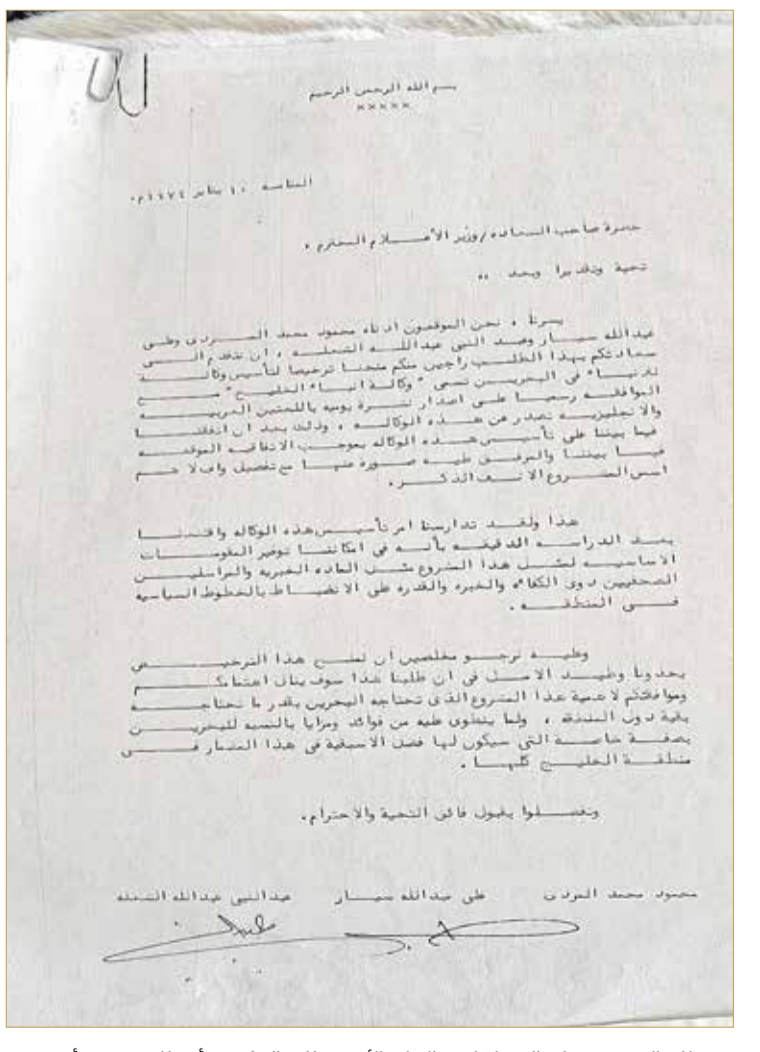 بسم الله الرحمن الرحيم
×××××
المنامه ١٠ يناير ١٩٧٤م.
حضرة صاحب السعاده/وزير الأعـــلام المحترم ،
تحية وتقديرا وبعد ،،
يسرنا ، نحن الموقعون ادناه محمود محمد المـــردى وعلى
عبدالله سيـار وعبد النبي عبداللــه الشعلـه ، ان نتقدم الـــى
سعادتكم بهذا الطلــب راجين منكم منحنـا ترخيصا لتأسيس وكالــة
للانبـا* فى البحريــن تسمى " وكالـة انبـا* الخليـج " مـــع
الموافقـه رسميـا علـى اصدار نشـرة يوميه باللغتين العربيـــه
والانجليزيــه تصدر عن هــذه الوكالــه ، وذلك بعـد ان اتفقنــا
فيما بيننا على تأسيـس هــذه الوكاله بموجـب الاتفاقيـه الموقعــه
فيـا بيننــا والمرفــق طيــه صــورة منهــا مع تفصيل واف لا هــم
اسس المشــروع الانــف الذكــر.
هذا ولقــد تدارسنا امر تأسيــس هذه الوكاله واقتنعنــا
بعــد الدراســه الدقيقــه بأنــه فى امكاننــا توفير المقومــات
الاساسيـه لمثــل هذا المشروع مثــل الماده الخبريه والمراسليــن
الصحفيين ذوى الكفاءه والخبره والقدره على الانضبــاط بالخطوط السياسيه
فــى المنطقــه .
وعليــه نرجــو مخلصين ان نمنــح هذا الترخيــــص
يحدونا وطيــد الامــل فى ان طلبنا هذا سوف ينال اهتمامكــــم
وموافقتكم لاهمية هذا المشروع الذى تحتاجه البحرين بقدر ما تحتاجــه
بقية دول المنطقه ، ولما ينطوى عليه من فوائد ومزايا بالنسبه للبحريــن
بصفــة خاصــة التى سيكون لـها فضل الاسبقية فى هذا المضمار فـــى
منطقــة الخليــج كلهــا .
وتفضــلوا بقبول فائق التحية والاحترام.
محمود محمد المردى على عبدالله سيــار عبدالنبي عبدالله الشعله